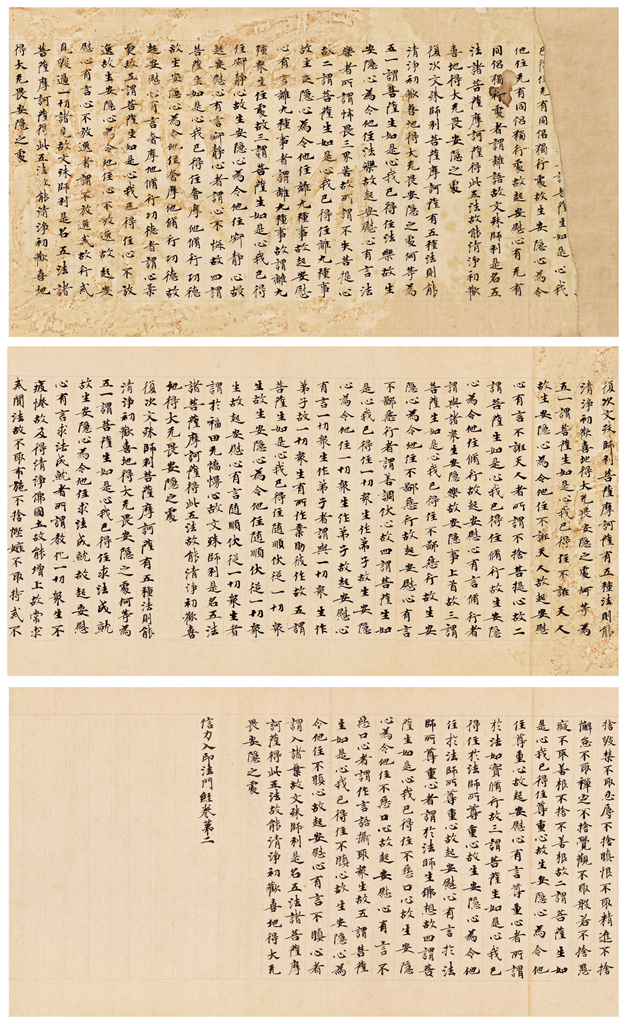 一謂菩薩生如是心我
已得住无有同侶獨行處故生安隱心為令
他住无有同侶獨行處故起安慰心有无有
同侶獨行處者謂離諸故文殊師利是名五
法諸菩薩摩訶薩得此五法故能清淨初歡
喜地得大无畏安隱之處
復次文殊師利菩薩摩訶薩有五種法則能
清淨初歡喜地得大无畏安隱之處何等為
五一謂菩薩生如是心我已得住法樂故生
安隱心為令他住法樂故起安慰心有言法
樂者所謂怖畏三界善故所謂不失菩提心
故二謂菩薩生如是心我已得住離九種事
故生安隱心為令他住離九種事故起安慰
心有言離九種事者謂離九種事故謂離九
種衆生住處故三謂菩薩生如是心我已得
住寂靜心故生安隱心為令他住寂靜心故
起安慰心有言寂靜心者謂心不悔故四謂
菩薩生如是心我已得住奢摩他脩行功德
故生安隱心為令他住奢摩他脩行功德故
起安慰心有言奢摩他脩行功德者謂心柔
耎故五謂菩薩生如是心我已得住心不放
逸故生安隱心為令他住心不放逸故起安
慰心有言心不放逸者謂不放逸戒故行戒
見過一切諸見故文殊師利是名五法諸
菩薩摩訶薩得此五法故能清淨初歡喜地
得大无畏安隱之處
復次文殊師利菩薩摩訶薩有五種法則能
清淨初歡喜地得大无畏安隱之處何等為
五一謂菩薩生如是心我已得住不誑天人
故生安隱心為令他住不誑天人故起安慰
心有言不誑天人者所謂不捨菩提心故二
謂菩薩生如是心我已得住脩行故生安隱
心為令他住脩行故起安慰心有言脩行者
謂與諸衆生安隱樂故安隱事上首故三謂
菩薩生如是心我已得住不鄙惡行故生安
隱心為令他住不鄙惡行故起安慰心有言
不鄙惡行者謂善調伏心故四謂菩薩生如
是心我已得住一切衆生作弟子故生安隱
心為令他住一切衆生作弟子故起安慰心
有言一切衆生作弟子者謂與一切衆生作
弟子故一切衆生有所作業助彼作故五謂
菩薩生如是心我已得住隨順伏從一切衆
生故生安隱心為令他住隨順伏從一切衆
生故起安慰心有言隨順伏從一切衆生者
謂於福田无憍慢心故文殊師利是名五法
諸菩薩摩訶薩得此五法故能清淨初歡喜
地得大无畏安隱之處
復次文殊師利菩薩摩訶薩有五種法則能
清淨初歡喜地得大无畏安隱之處何等為
五一謂菩薩生如是心我已得住求法成就
故生安隱心為令他住求法成就故起安慰
心有言求法成就者所謂教化一切衆生不
疲惓故及得清淨佛國土故能增上故常求
多聞法故不取布施不捨慳嫉不取持戒不
捨毀禁不取忍辱不捨瞋恨不取精進不捨
懈怠不取禪定不捨覺觀不取般若不捨愚
癡不取善根不捨不善根故二謂菩薩生如
是心我已得住尊重心故生安隱心為令他
住尊重心故起安慰心有言尊重心者所謂
於法如實脩行故三謂菩薩生如是心我已
得住於法師所尊重心故生安隱心為令他
住於法師所尊重心故起安慰心有言於法
師所尊重心者謂於法師生佛想故四謂菩
薩生如是心我已得住不惡口心故生安隱
心為令他住不惡口心故起安慰心有言不
惡口心者謂作言語攝取衆生故五謂菩薩
生如是心我已得住不瞋心故生安隱心為
令他住不瞋心故起安慰心有言不瞋心者
謂入諸業故文殊師利是名五法諸菩薩摩
訶薩得此五法故能清淨初歡喜地得大无
畏安隱之處
信力入印法門經卷第二